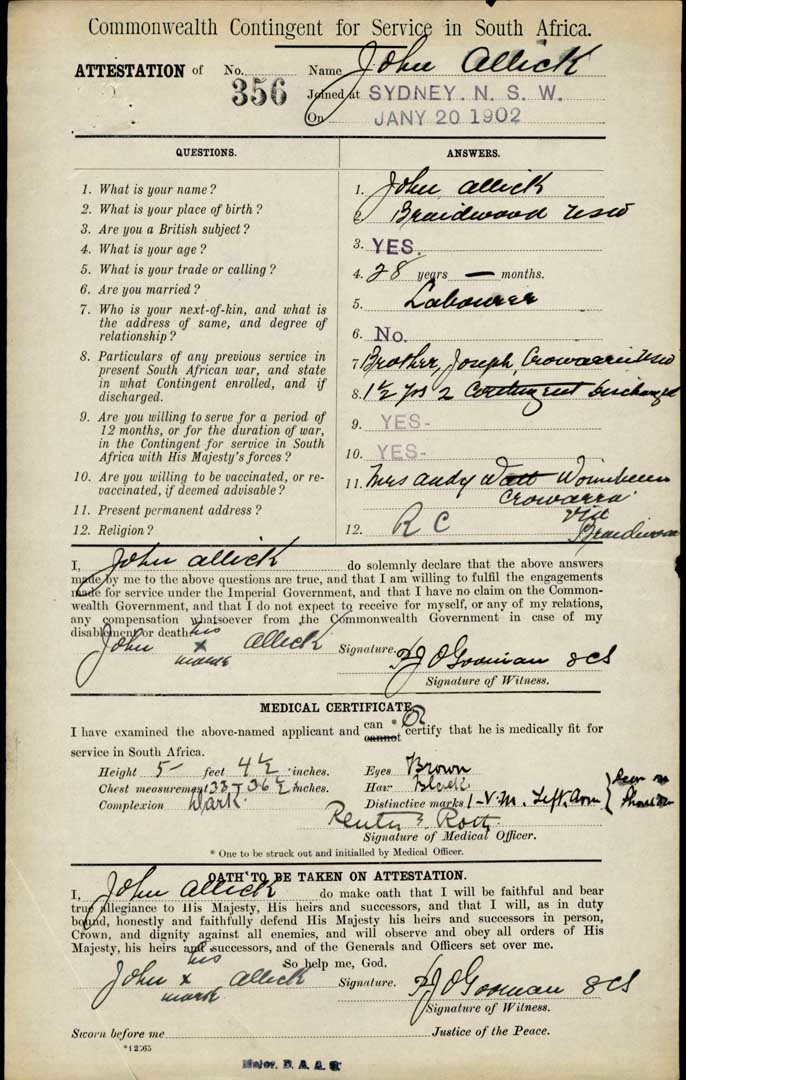 Commonwealth Contingent for Service in South Africa.
ATTESTATION of No. 356 Name John Allick
Joined at SYDNEY. N. S. W.
On JANY 20 1902
QUESTIONS.
1. What is your name?
2. What is your place of birth?
3. Are you a British subject?
4. What is your age?
5. What is your trade or calling?
6. Are you married?
7. Who is your next-of-kin, and what is
the address of same, and degree of
relationship?
8. Particulars of any previous service in
present South African war, and state
in what Contingent enrolled, and if
discharged.
9. Are you willing to serve for a period of
12 months, or for the duration of war,
in the Contingent for service in South
Africa with His Majesty's forces?
10. Are you willing to be vaccinated, or re-
vaccinated, if deemed advisable?
11. Present permanent address?
12. Religion?
ANSWERS.
1. John Allick
2 Braidwood NSW
3. YES.
4. 28 years — months.
5. Labourer
6. No.
7 Brother, Joseph, NSW
8. 1½ yrs 2 Contingent Discharged
9. YES-
10. YES-
11. Mrs Andy Watt
Crowarra
via
Braidwood
12. R C
I, John Allick do solemnly declare that the above answers
made by me to the above questions are true, and that I am willing to fulfil the engagements
made for service under the Imperial Government, and that I have no claim on the Common-
wealth Government, and that I do not expect to receive for myself, or any of my relations,
any compensation whatsoever from the Commonwealth Government in case of my
disablement or death.
John his x mark Allick Signature.
Signature of Witness.
MEDICAL CERTIFICATE
I have examined the above-named applicant and can * cannot certify that he is medically fit for
service in South Africa.
Height 5 feet 4½ inches.
Chest measurement 33 T 36½ inches.
Complexion Dark.
Eyes Brown
Hair Black
Distinctive marks 1-V.M. Left Arm
Signature of Medical Officer.
* One to be struck out and initialled by Medical Officer.
OATH TO BE TAKEN ON ATTESTATION.
I, John Allick do make oath that I will be faithful and bear
true allegiance to His Majesty, His heirs and successors, and that I will, as in duty
bound, honestly and faithfully defend His Majesty his heirs and successors in person,
Crown, and dignity against all enemies, and will observe and obey all orders of His
Majesty, his heirs and successors, and of the Generals and Officers set over me.
So help me, God.
John his x mark Allick Signature.
Signature of Witness.
Sworn before me Justice of the Peace.
Major. D. A. A. G.